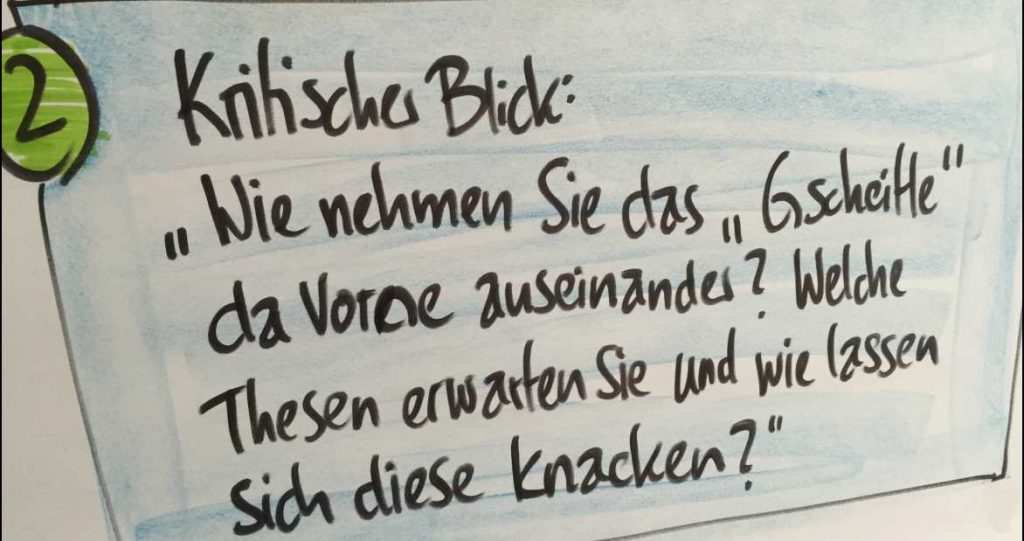 2
Kritischer Blick:
„Wie nehmen Sie das „Gscheitle"
da Vorne auseinander? Welche
Thesen erwarten Sie und wie lassen
sich diese knacken?"